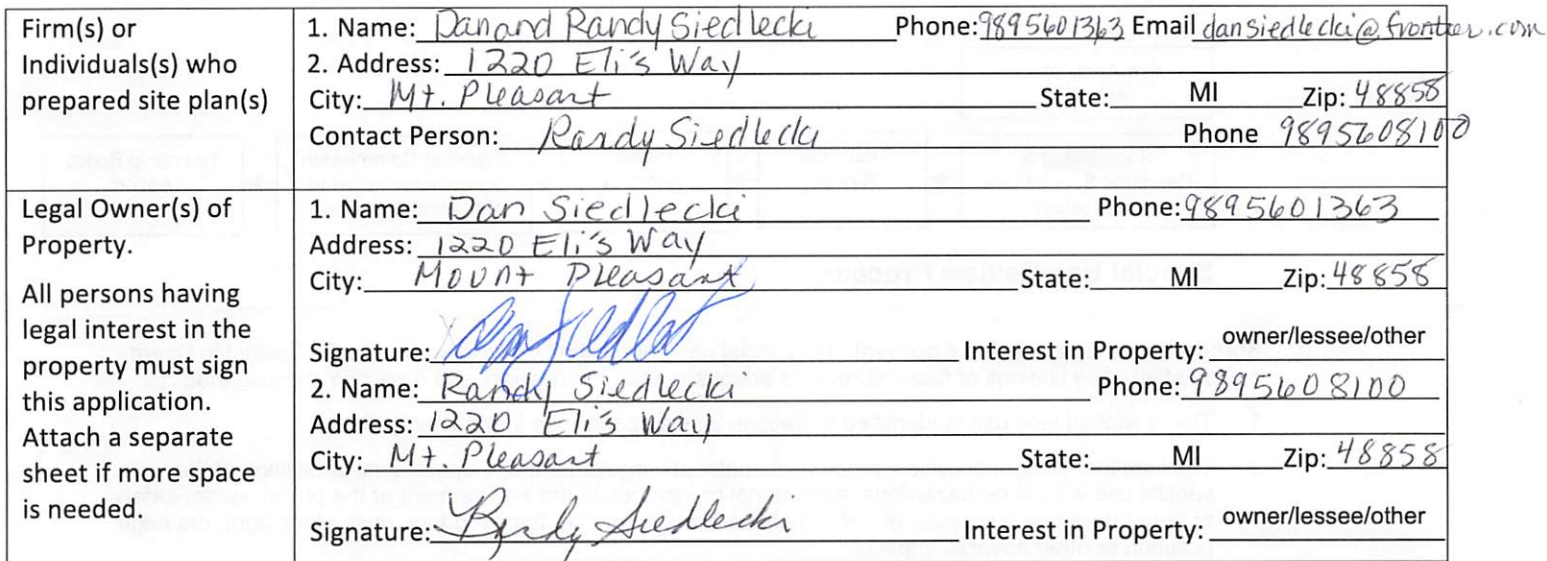 Firm(s) or Individuals(s) who prepared site plan(s)
1. Name: Dan and Randy Siedlecki Phone: 9895601363 Email dansiedlecki@frontier.com
2. Address: 1220 Eli's Way
City: Mt. Pleasant State: MI Zip: 48858
Contact Person: Randy Siedlecki Phone 9895608100
Legal Owner(s) of Property.
All persons having legal interest in the property must sign this application. Attach a separate sheet if more space is needed.
1. Name: Dan Siedlecki Phone: 9895601363
Address: 1220 Eli's Way
City: Mount Pleasant State: MI Zip: 48858
Signature: Interest in Property: owner/lessee/other
2. Name: Randy Siedlecki Phone: 9895608100
Address: 1220 Eli's Way
City: Mt. Pleasant State: MI Zip: 48858
Signature: Randy Siedlecki Interest in Property: owner/lessee/other